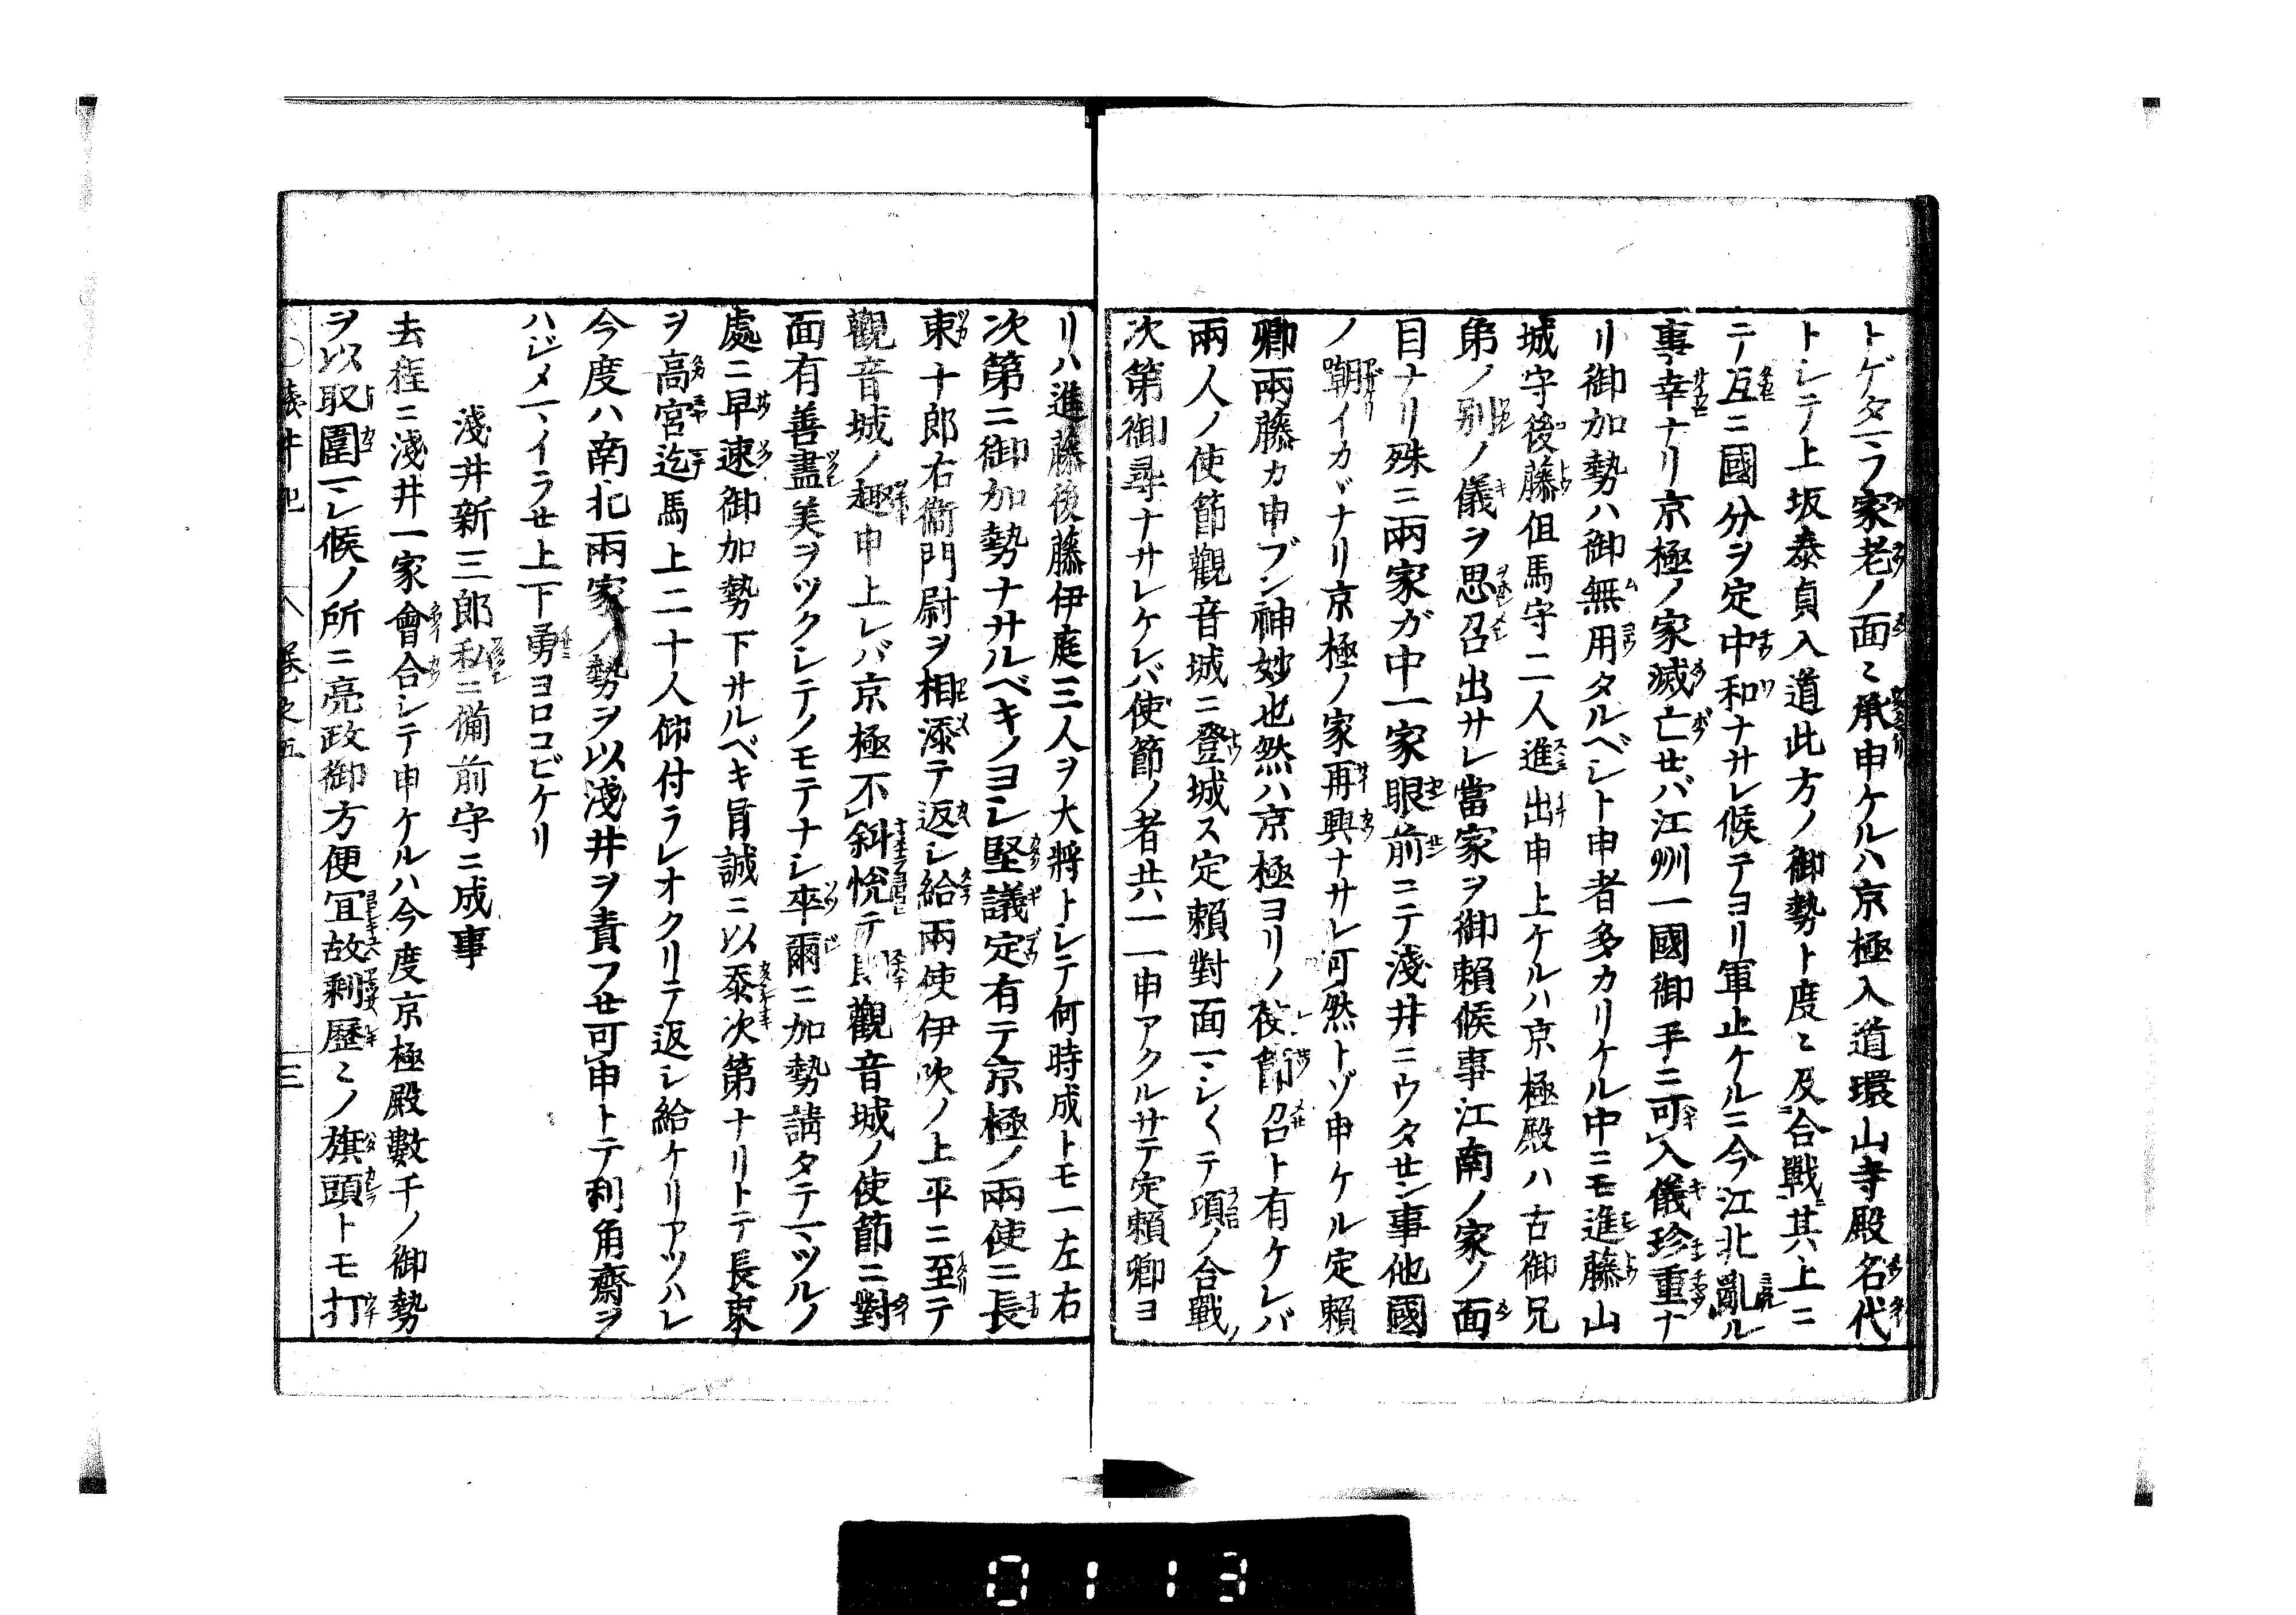 トゲタマフ家老ノ面〻承申ケルハ京極入道環山寺殿名代
トシテ上坂泰貞入道此方ノ御勢ト度〻及合戰其上ニ
テ互ニ國分ヲ定中和ナサレ候テヨリ軍止ケルニ今江北亂ル
事幸ナリ京極ノ家滅亡せバ江州一國御手ニ可入儀珍重ナ
リ御加勢ハ御無用タルベシト申者多カリケル中ニモ進藤山
城守後藤但馬守二人進出申上ケルハ京極殿ハ古御兄
弟ノ別ノ儀ヲ思召出サレ當家ヲ御賴候事江南ノ家ノ面
目ナリ殊ニ兩家ガ中一家眼前ニテ淺井ニウタせン事他國
ノ嘲イカヾナリ京極ノ家再興ナサレ可然トゾ申ケル定賴
卿兩藤カ申ブン神妙也然ハ京極ヨリノ使節召ト有ケレバ
兩人ノ使節觀音城ニ登城ス定賴對面マシ〱テ項ノ合戰ノ
次第御尋ナサレケレバ使節ノ者共一一申アクルサテ定賴卿ヨ
リハ進藤後藤伊庭三人ヲ大將トシテ何時成トモ一左右
次第ニ御加勢ナサルベキノヨシ堅議定有テ京極ノ兩使ニ長
束十郎右衞門尉ヲ相添テ返シ給兩使伊吹ノ上平ニ至テ
觀音城ノ趣申上レバ京極不斜悅テ觀音城ノ使節ニ對
面有善盡美ヲツクシテノモテナシ卒爾ニ加勢講タテマツルノ
處ニ早速御加勢下サルベキ旨誠ニ以泰次第ナリトテ長束
ヲ高宮迄馬上二十人仰付ラレオクリテ返シ給ケリアツハレ
今度ハ南北兩家ノ勢ヲ以淺井ヲ責フせ可申トテ利角齋ヲ
ハジメマイラせ上下勇ヨロコビケリ
淺井新三郎私ニ備前守ニ成事
去程ニ淺井一家會合シテ申ケルハ今度京極殿數千ノ御勢
ヲ以取圍マレ候ノ所ニ亮政御方便冝故剩歷〻ノ旗頭トモ打
淺井記 卷之五 三
0113